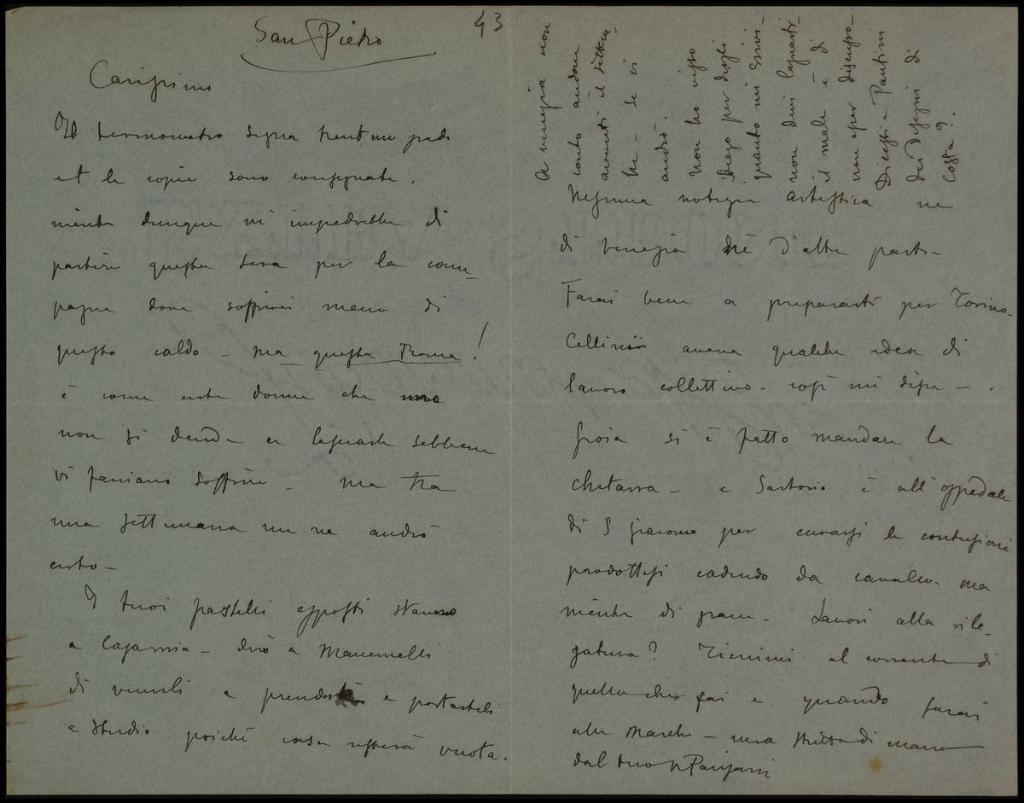 43
San Pietro
Carissimo
Il termometro segna trentun gradi
et le copie sono consegnate.
niente dunque mi impedirebbe di
partire questa sera per la cam-
pagna dove soffrirei meno di
questo caldo - ma questa Roma!
è come certe donne che
non si decide a lasciarle sebbene
vi facciano soffrire - ma tra
una settimana me ne andrò
certo -
I tuoi pastelli esposti stanno
a casa mia - dirò a
di venirli a prendere e portarteli
a studio poiché casa resterà vuota.
Nessuna notizia artistica ne
di Venezia né d'altre parti -
Farai bene a prepararti per Torino.
Cellini aveva qualche idea di
lavoro collettivo - così mi disse -.
Gioia si è fatto mandare la
chitarra - e Sartorio è all'ospedale
di S Giacomo per curarsi le contusioni
prodottesi cadendo da cavallo - ma
niente di grave. Lavori alla rile-
gatura? Tienimi al corrente di
quello che fai e quando farai
alle Marche - una stretta di mano
dal tuo
A Venezia non
conto andare
avanti il settem-
bre - se ci
andrò.
non ho visto
Diego per dirgli
quanto mi scrivi -
non devi lagnarti
il male è di
non esser
Dicesti a Pantini
dei disegni di
Costa?